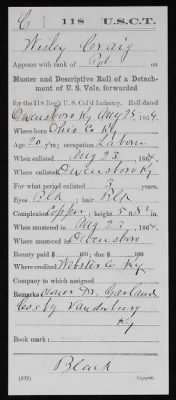 C | 118 | U.S.C.T.
Wisley Craig
Appears with rank of Pvt on
Muster and Descriptive Roll of a Detach-
ment of U. S. Vols. forwarded
for the 118 Reg't U.S. Col'd Infantry. Roll dated
Owensboro Ky Aug 24, 1864.
Where born Ohio Co Ky
Age 20 y'rs; occupation Laborer
When enlisted Aug 23, 1864.
Where enlisted Owensboro Ky
For what period enlisted 3 years.
Eyes Blk; hair Blk
Complexion Copper; height 5 ft. 5 in.
When mustered in Aug 23, 1864.
Where mustered in Owensboro
Bounty paid $ 100; due $ 100
Where credited Webster Co Ky
Company to which assigned
Remarks: owner Dr. Garland
Cox by Vanderburg
Ky
Book mark:
Black
(339) Copyist.